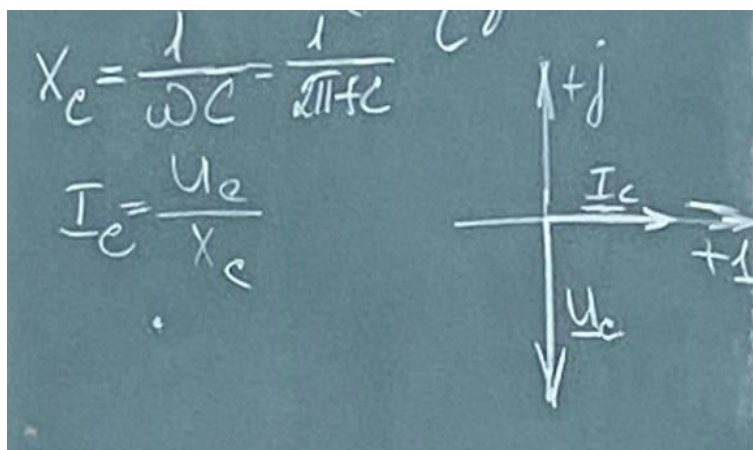 X_C = 1/ωC = 1/2πfC
I_C = U_C/X_C
+j
I_C
+1
U_C